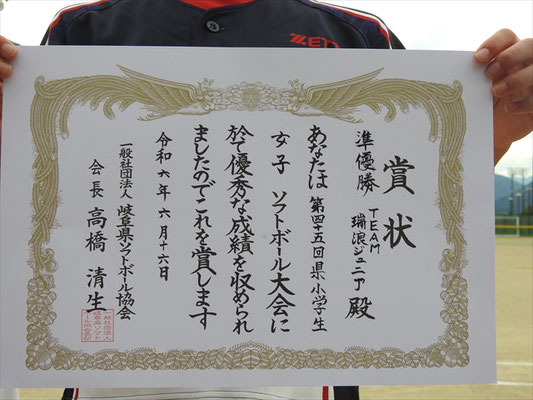 賞状
準優勝
TEAM
瑞浪ジュニア 殿
あなたは 第四十五回県小学生
女子 ソフトボール大会に
於て優秀な成績を収められ
ましたのでこれを賞します
令和六年六月十六日
一般社団法人 岐阜県ソフトボール協会
会長 高橋清生
ZETT